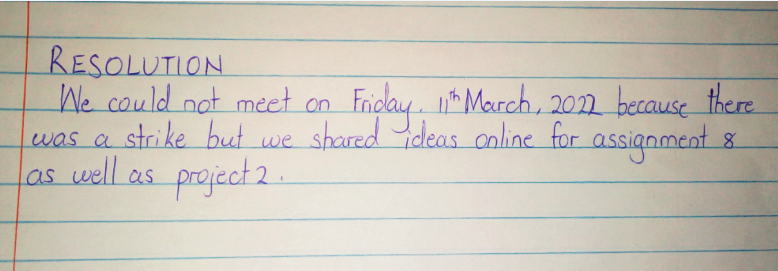 RESOLUTION
We could not meet on Friday. 11th March, 2022 because there
was a strike but we shared ideas online for assignment 8
as well as project 2.